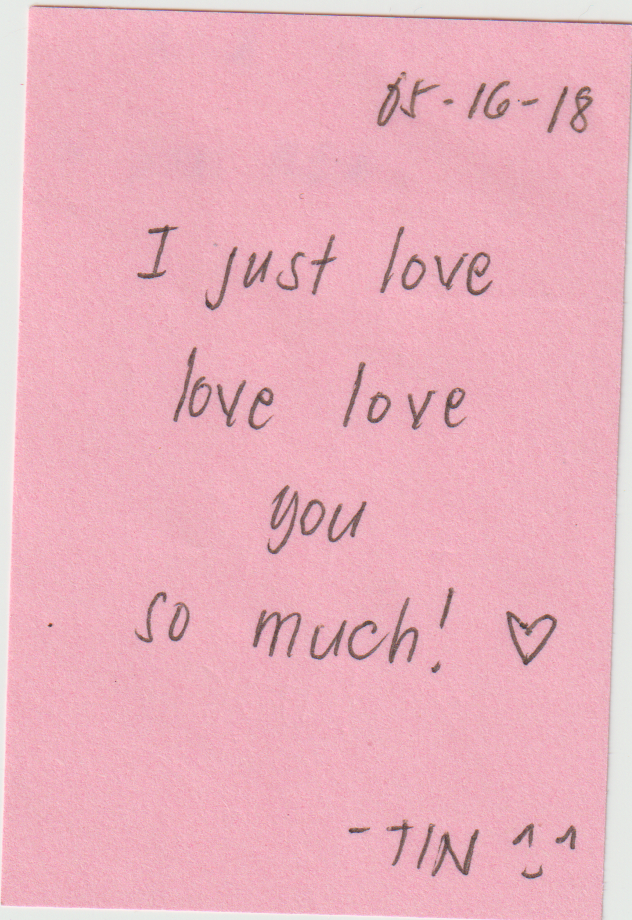 05-16-18
I just love
love love
you
so much! ♡
-TIN ^‿^